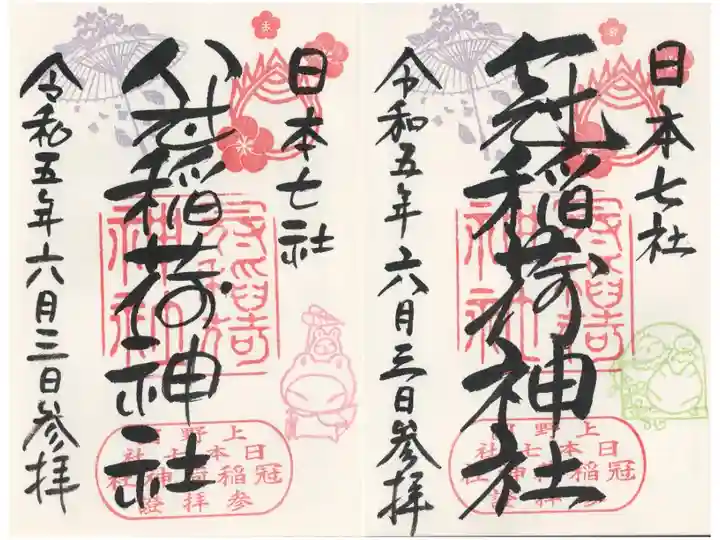 日本七社
冠稲荷神社
令和五年六月三日参拝
冠稲荷神社
上野國
日本七社
冠稲荷神社
参拝證
日本七社
冠稲荷神社
令和五年六月三日参拝
冠稲荷神社
上野國
日本七社
冠稲荷神社
参拝證